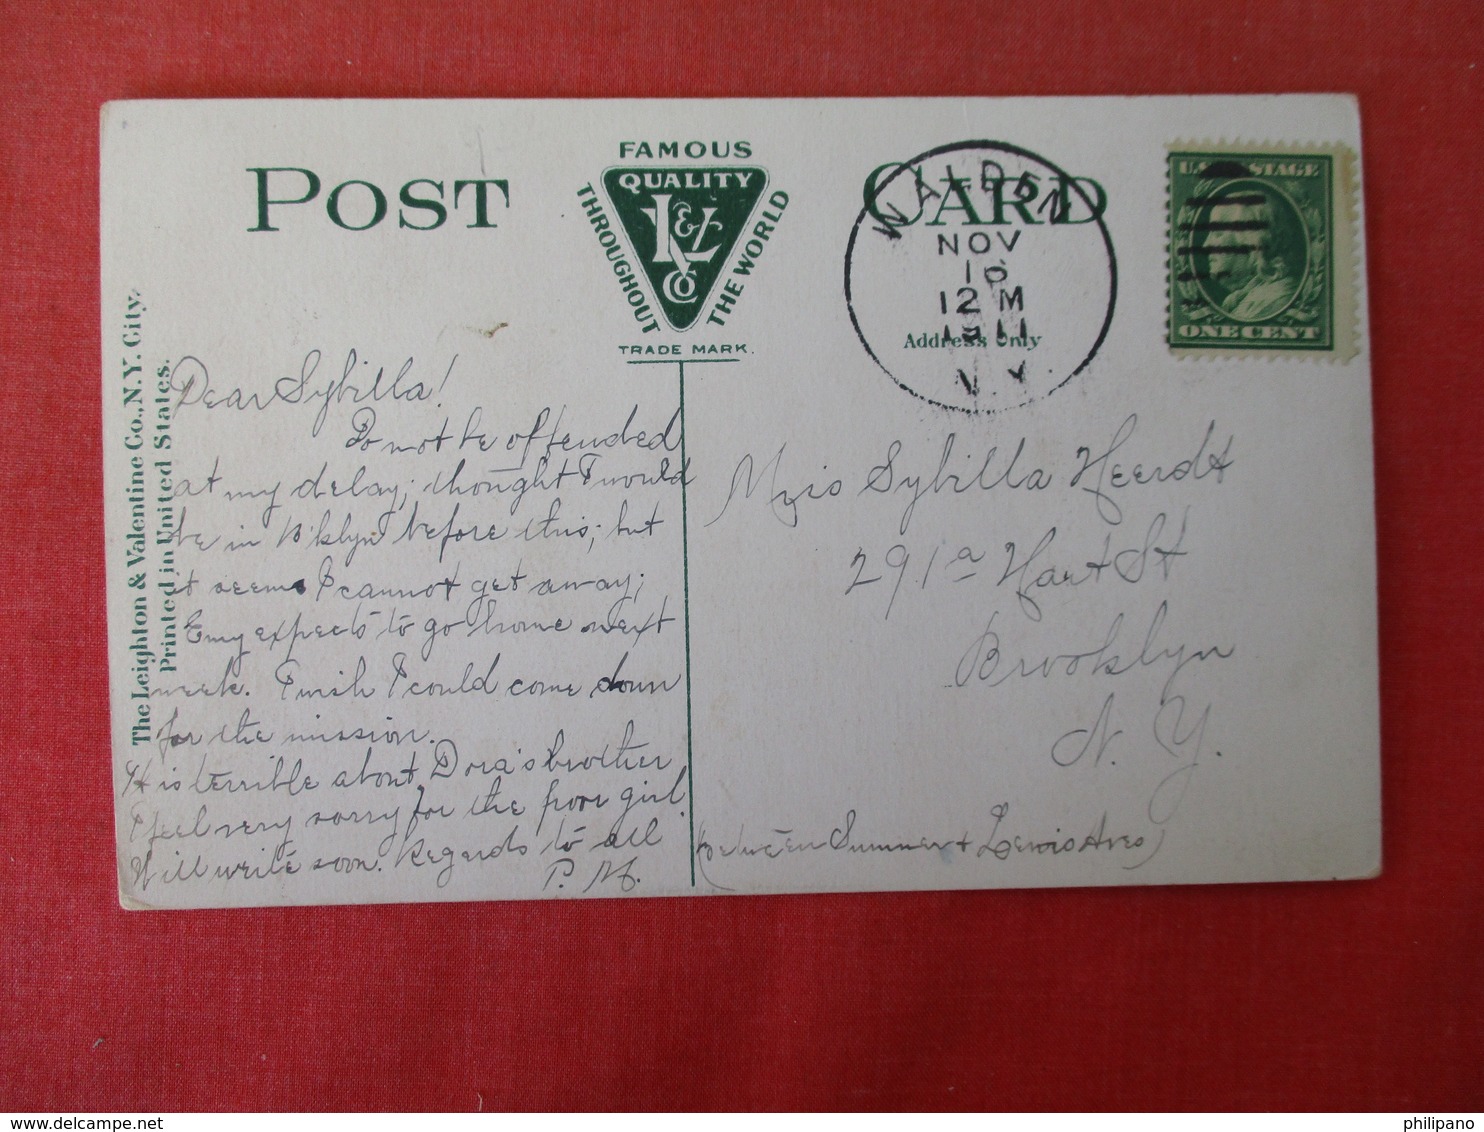 POST CARD
FAMOUS
QUALITY
THROUGHOUT
THE WORLD
L & V
Co
TRADE MARK.
WALDEN
NOV
16
12 M
1911
N.Y.
Address Only
U.S. POSTAGE
ONE CENT
The Leighton & Valentine Co., N.Y. City.
Printed in United States.
Dear Sybilla!
Do not be offended
at my delay; thought I would
be in B'klyn before this; but
it seems I cannot get away;
Emy expects to go home next
week. I wish I could come down
for the mission.
It is terrible about Dora's brother
I feel very sorry for the poor girl.
Will write soon. Regards to all
P. M.
Miss Sybilla Heerdt
291a Hart St
Brooklyn
N. Y.
(between Sumner & Lewis Aves)
philipano